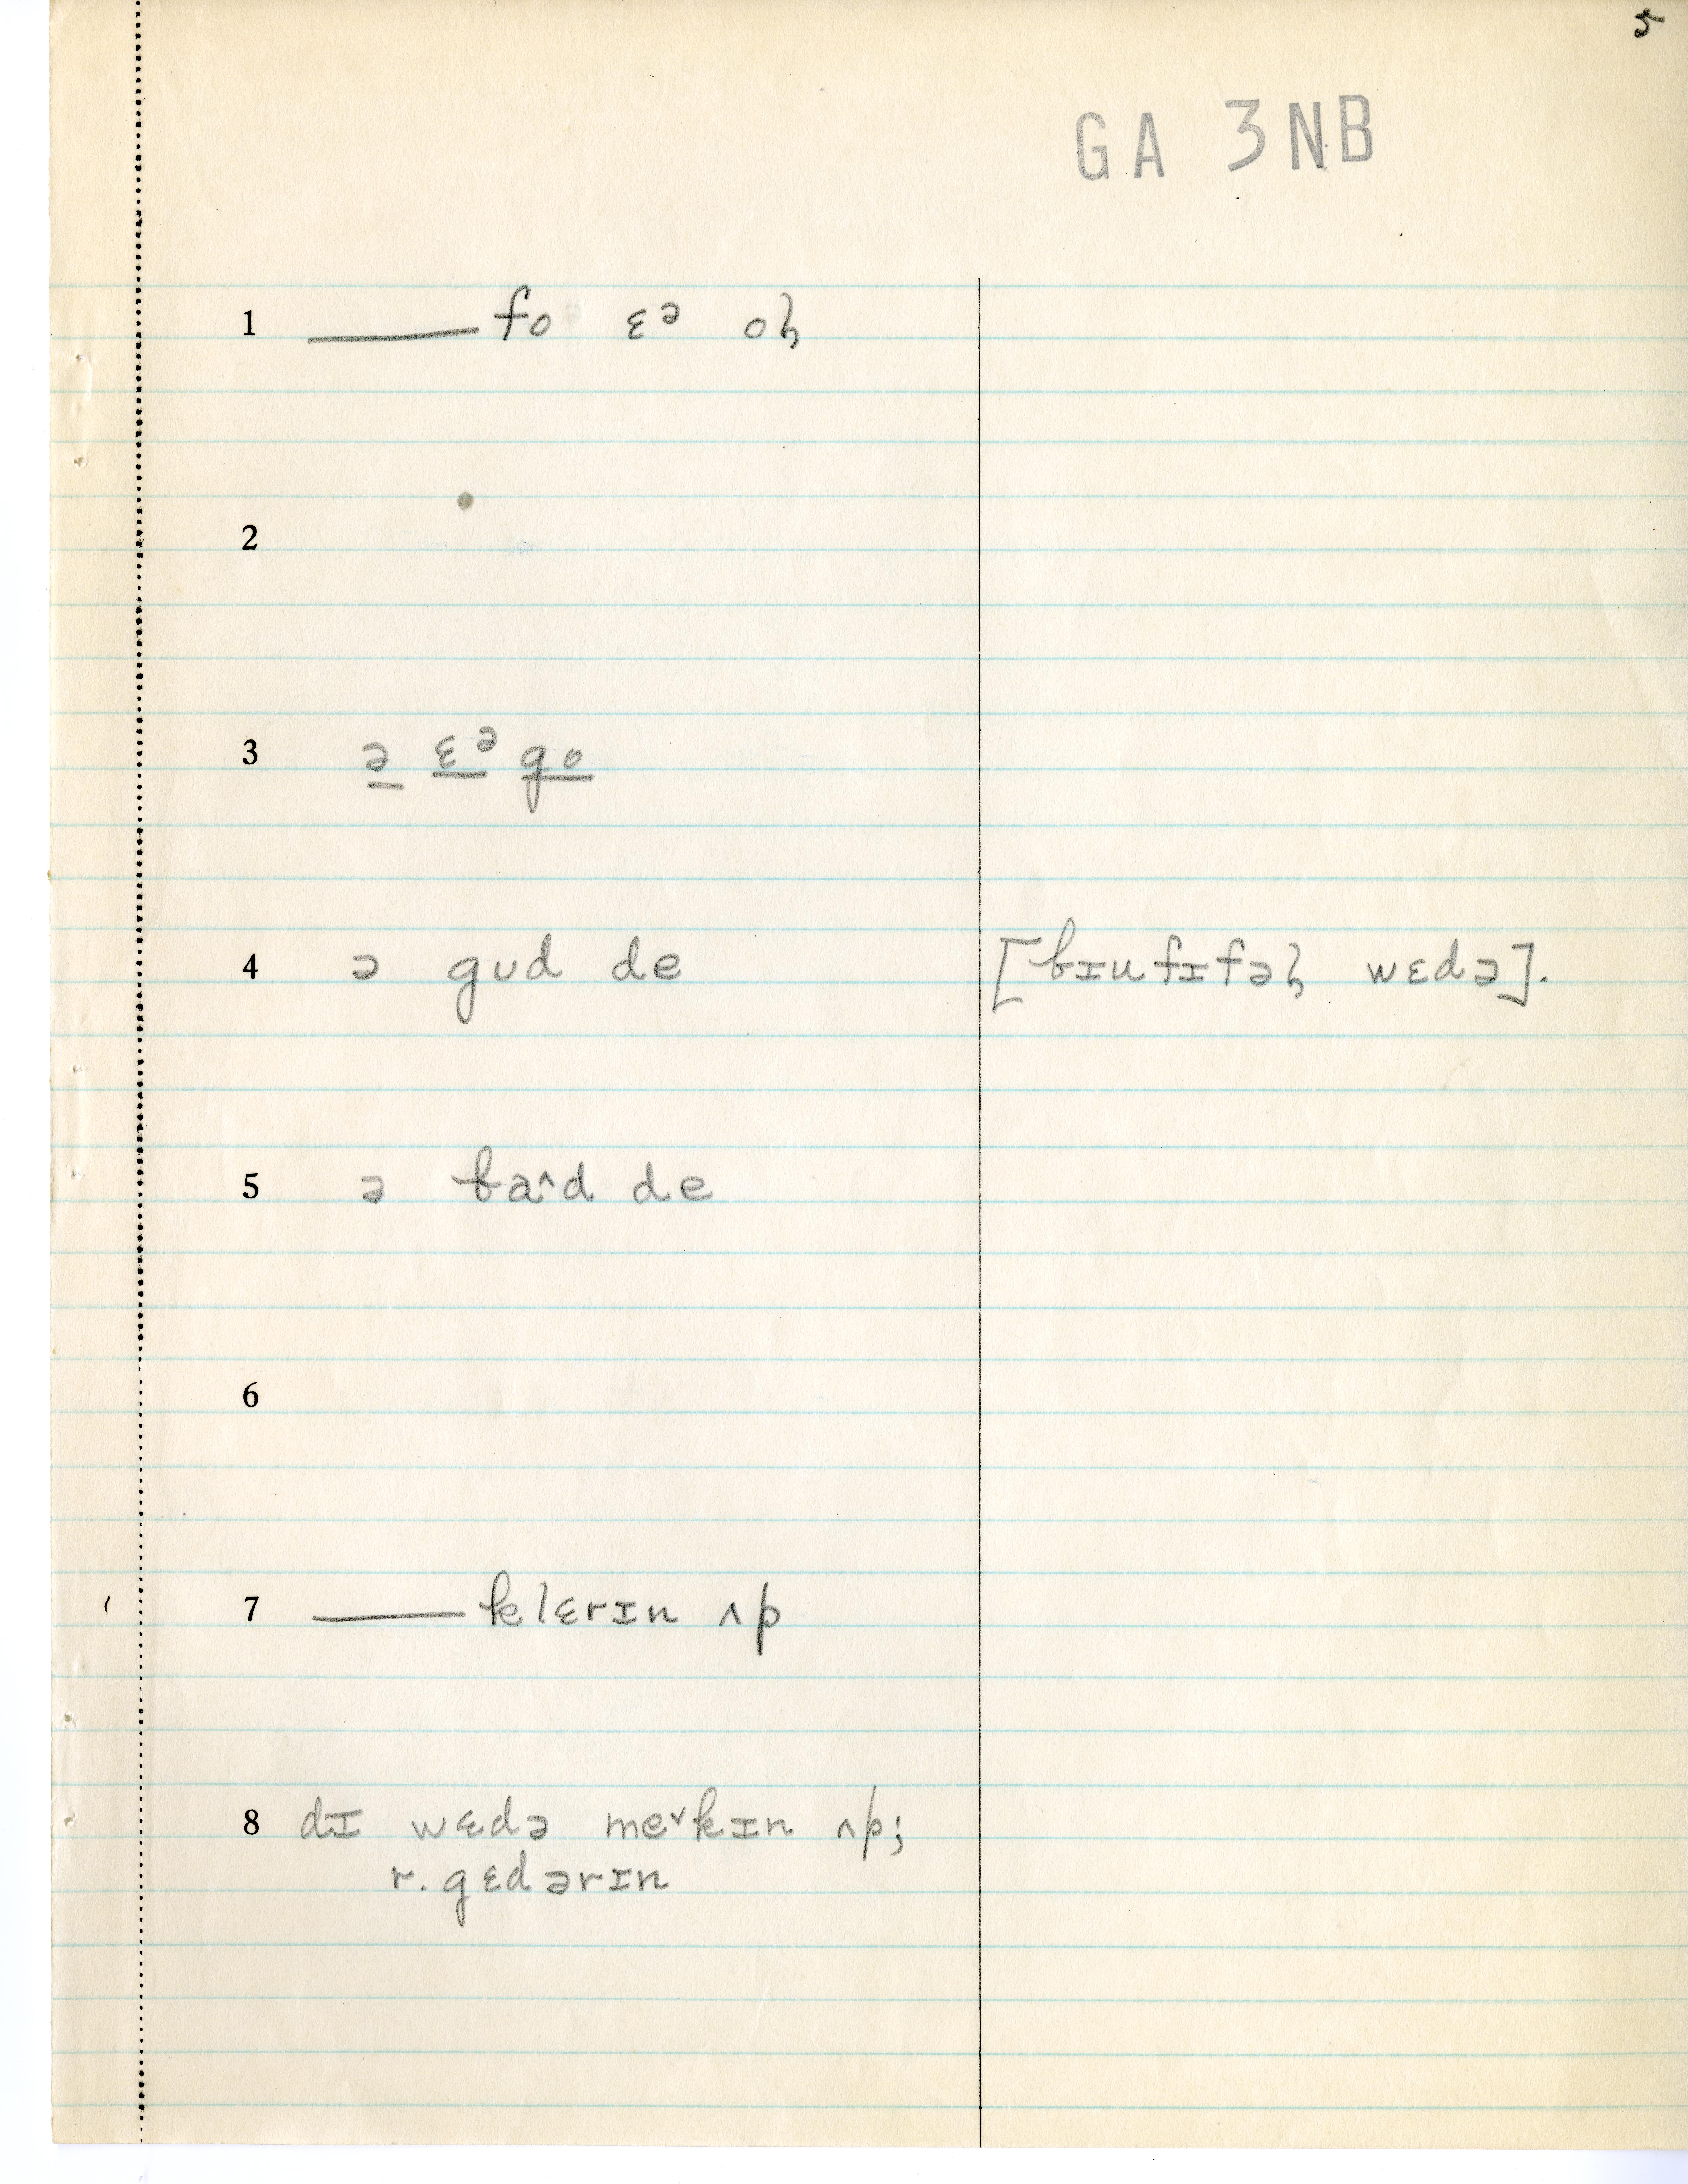 5
GA 3NB
1 ____ fo ɛə oɫ
2
3 ə ɛᵊ go
4 ə gʊd de [bɪufɪfəɫ wɛdə].
5 ə ba^d de
6
7 ____ klɛrɪn ʌp
8 dɪ wɛdə me˅kɪn ʌp;
r. gɛdərɪn